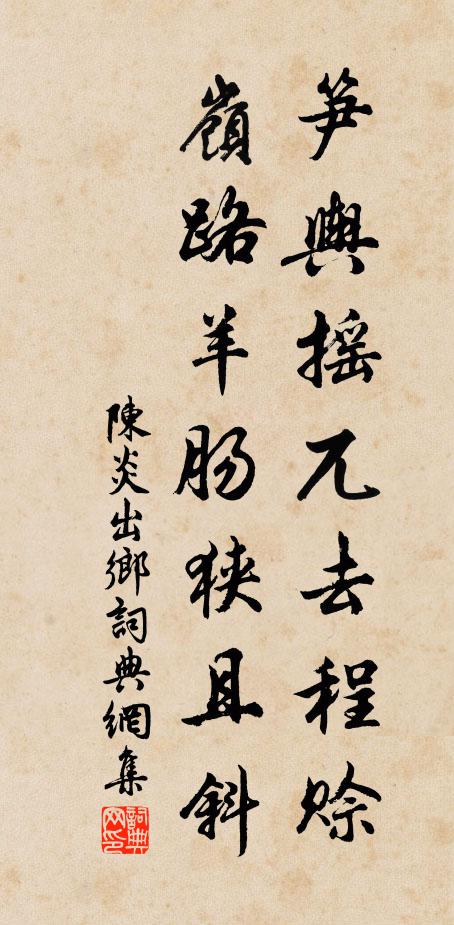 笋輿摇兀去程賒
嶺路羊腸狹且斜
陳炎出鄉詞典網集
詞典网印